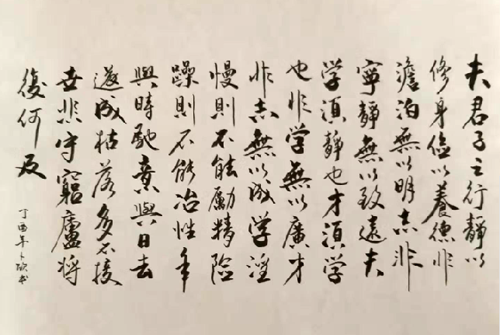 夫君子之行靜以
修身儉以養德非
澹泊無以明志非
寧靜無以致遠夫
学須靜也才須学
也非学無以廣才
非志無以成学淫
慢則不能勵精險
躁則不能冶性年
與時馳意與日去
遂成枯落多不接
世悲守窮廬將
復何及
丁酉年 书